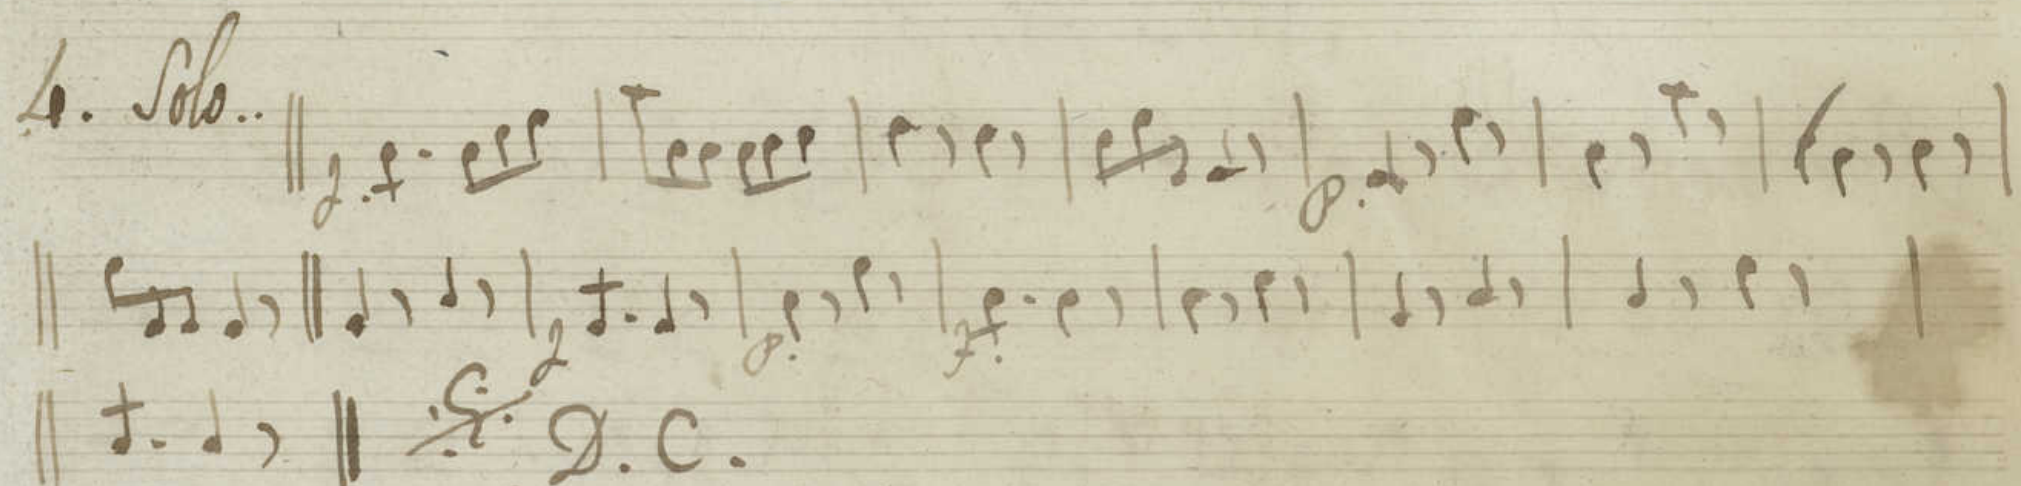 4. Solo..
f. p.
f p. f.
D. C.